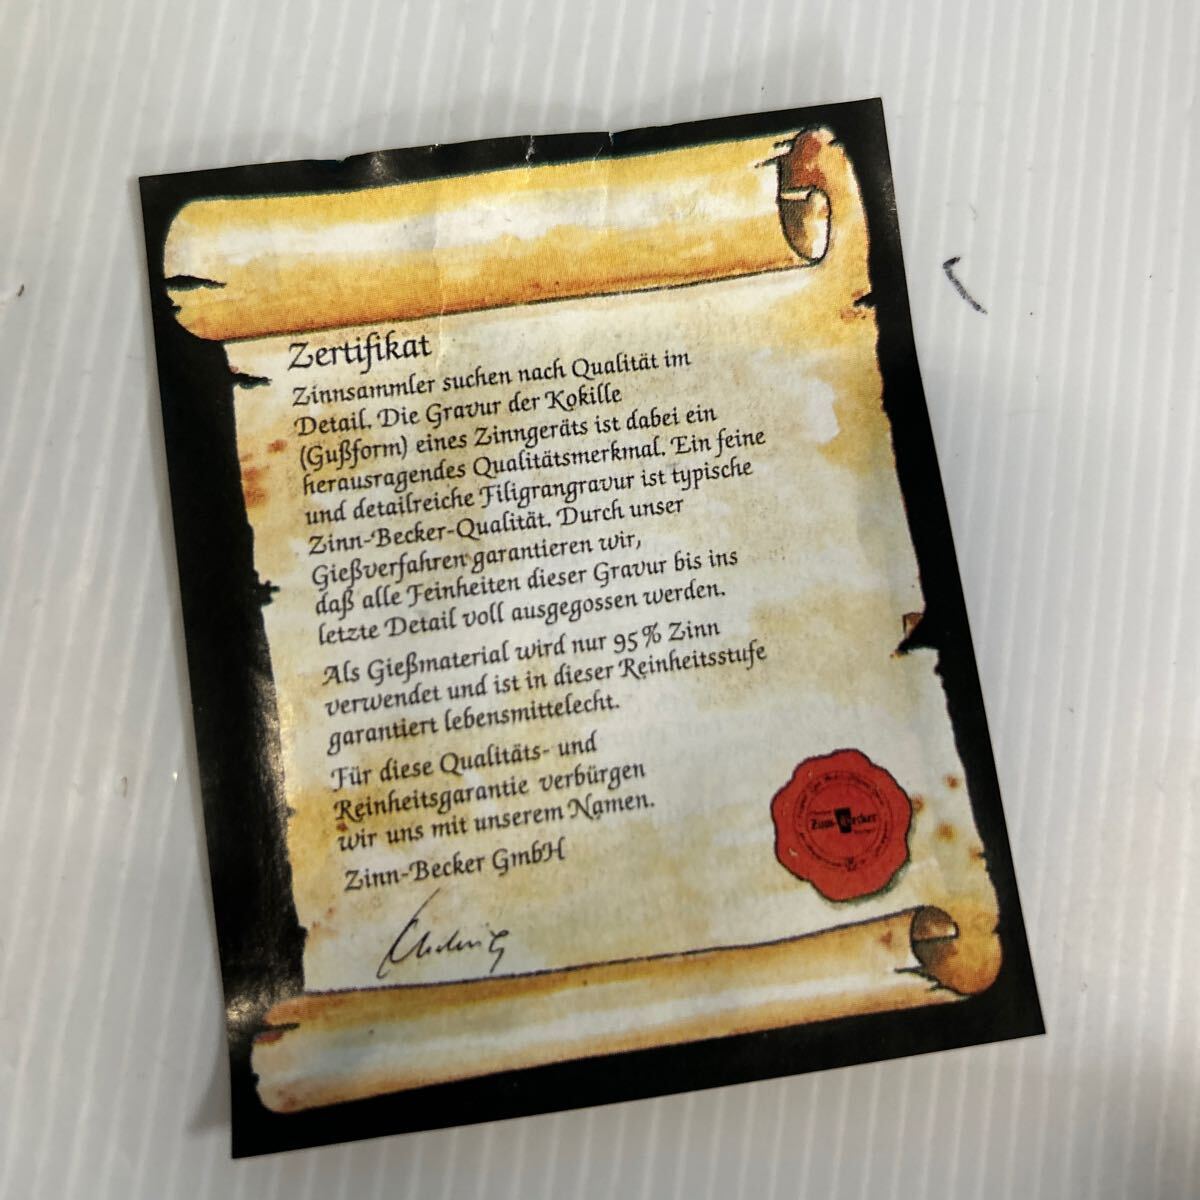 Zertifikat
Zinnsammler suchen nach Qualität im
Detail. Die Gravur der Kokille
(Gußform) eines Zinngeräts ist dabei ein
herausragendes Qualitätsmerkmal. Ein feine
und detailreiche Filigrangravur ist typische
Zinn-Becker-Qualität. Durch unser
Gießverfahren garantieren wir,
daß alle Feinheiten dieser Gravur bis ins
letzte Detail voll ausgegossen werden.
Als Gießmaterial wird nur 95% Zinn
verwendet und ist in dieser Reinheitsstufe
garantiert lebensmittelecht.
Für diese Qualitäts- und
Reinheitsgarantie verbürgen
wir uns mit unserem Namen.
Zinn-Becker GmbH
Zinn-Becker